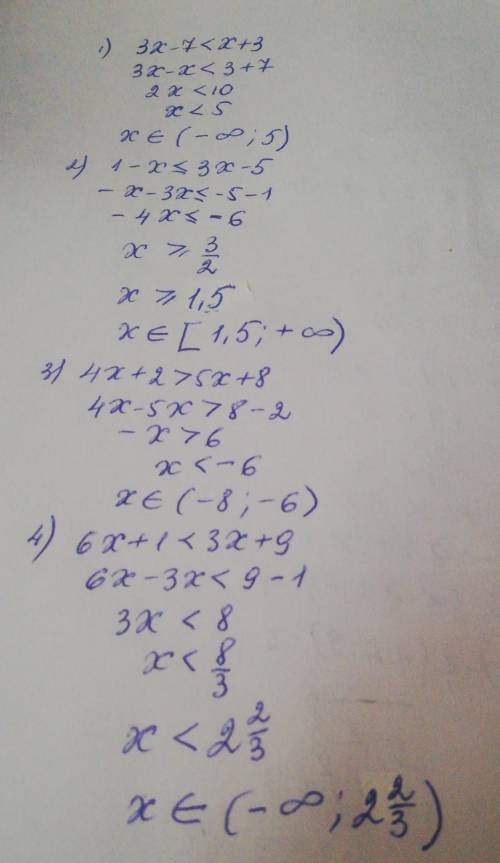 1) 3x-7<x+3
3x-x<3+7
2x<10
x<5
x∈(-∞;5)
2) 1-x≤3x-5
-x-3x≤-5-1
-4x≤-6
x≥3/2
x≥1,5
x∈[1,5;+∞)
3) 4x+2>5x+8
4x-5x>8-2
-x>6
x<-6
x∈(-8;-6)
4) 6x+1<3x+9
6x-3x<9-1
3x<8
x<8/3
x<2 2/3
x∈(-∞;2 2/3)